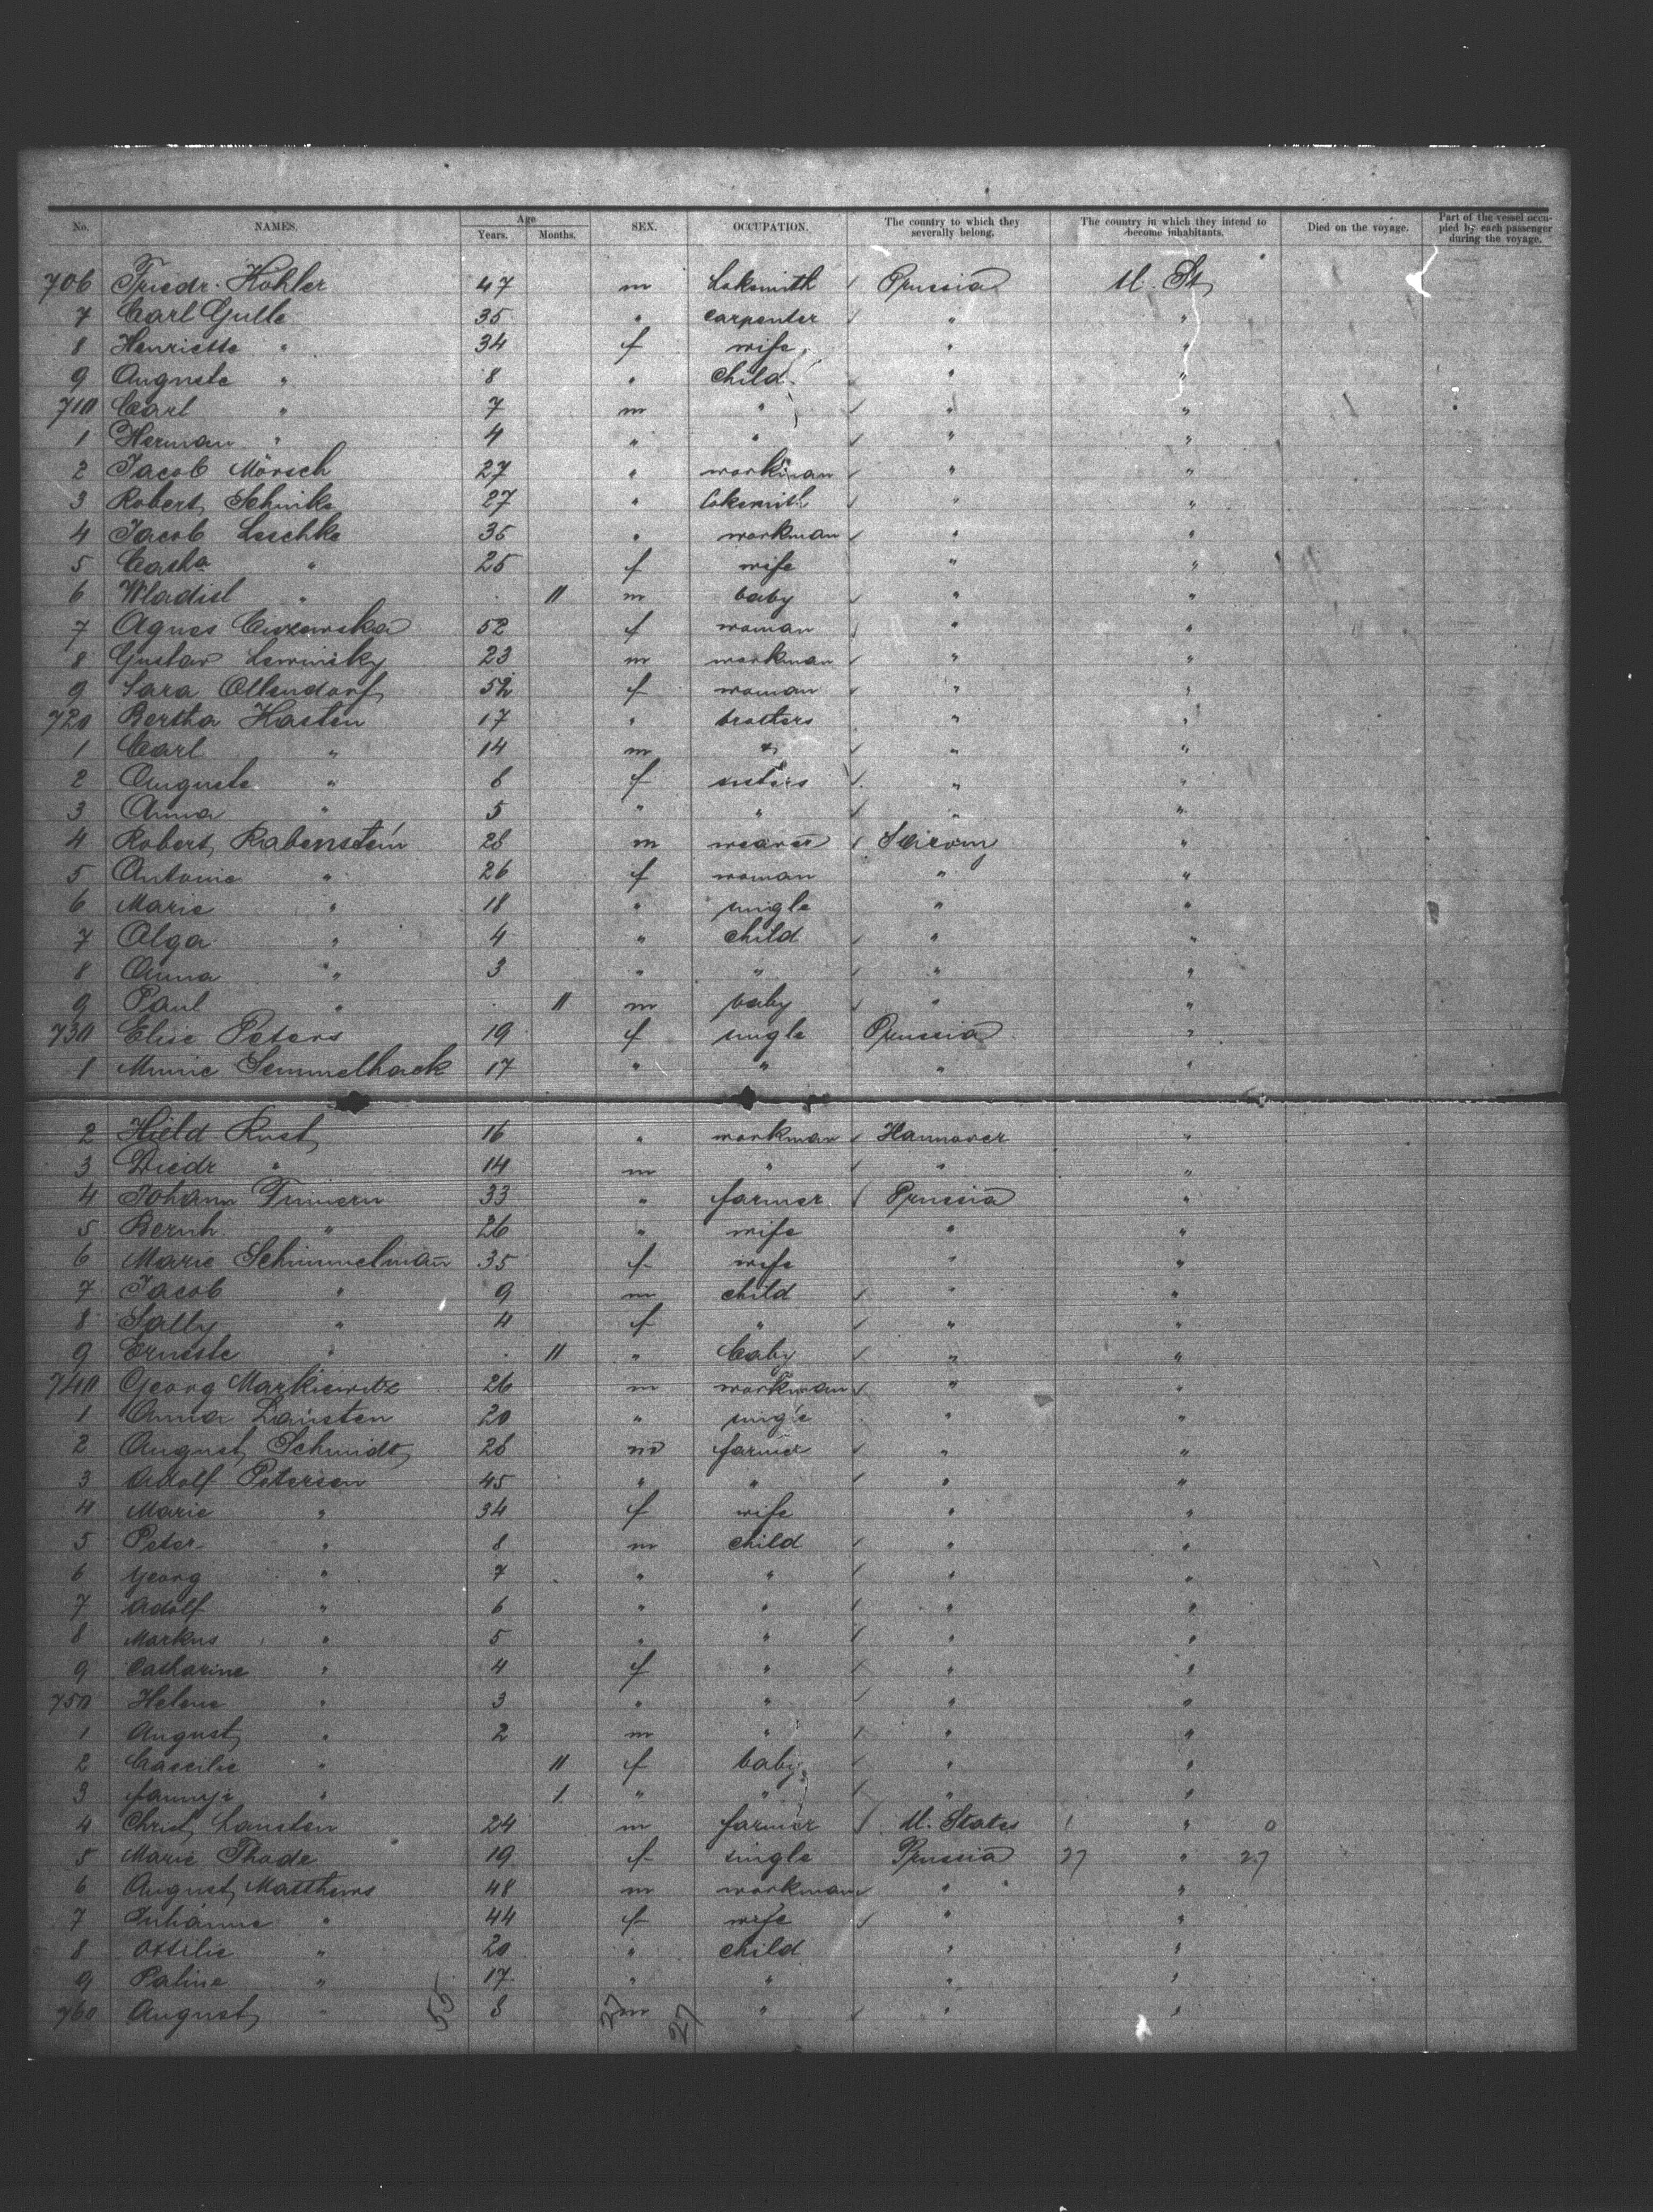 No. NAMES. Age Years. Months. SEX. OCCUPATION. The country to which they severally belong. The country in which they intend to become inhabitants. Died on the voyage. Part of the vessel occupied by each passenger during the voyage.
706 Friedr. Köhler 47 m Loksmith Prussia U. St.
7 Carl Gulle 35 " carpenter " "
8 Henriette " 34 f wife " "
9 Auguste " 8 " child " "
710 Carl " 7 m " " "
1 Herman " 4 " " " "
2 Jacob Mörsch 27 " workman " "
3 Robert Schnike 27 " Loksmith " "
4 Jacob Leschke 35 " workman " "
5 Casha " 25 f wife " "
6 Wladisl " 11 m baby " "
7 Agnes 52 f woman " "
8 Gustav Lewinsky 23 m workman " "
9 Sara Ollendorf 52 f woman " "
720 Bertha Hasten 17 " brothers " "
1 Carl " 14 m & " "
2 Auguste " 6 f sisters " "
3 Anna " 5 " " " "
4 Robert Rabenstein 28 m weaver "
5 Antonie " 26 f woman " "
6 Marie " 18 " single " "
7 Olga " 4 " child " "
8 Anna " 3 " " " "
9 Paul " 11 m baby " "
730 Elise Peters 19 f single Prussia "
1 Minnie Semmelhack 17 " " " "
2 Hield Rust 16 " workman Hannover "
3 Diedr " 14 m " " "
4 Johann 33 " farmer Prussia "
5 Bernh. " 26 " wife " "
6 Marie Schimmelmañ 35 f wife " "
7 Jacob " 9 m child " "
8 Sally " 4 f " " "
9 Erneste " 11 " baby " "
740 Georg Markiewitz 26 m workman " "
1 Anna Lausten 20 " single " "
2 August Schmidt 28 m farmer " "
3 Adolf Petersen 45 " " " "
4 Marie " 34 f wife " "
5 Peter " 8 m child " "
6 Georg " 7 " " " "
7 Adolf " 6 " " " "
8 Markus " 5 " " " "
9 Catharine " 4 f " " "
750 Helene " 3 " " " "
1 August " 2 m " " "
2 Caecilie " 11 f baby " "
3 " 1 " " " "
4 Christ. Lausten 24 m farmer U. States 1 " 0
5 Marie Thode 19 f single Prussia 27 " 27
6 August Matthews 48 m workman " "
7 " 44 f wife " "
8 Ottilie " 20 " child " "
9 Paline " 17 " " " "
760 August " 8 m " " "
55 27 27